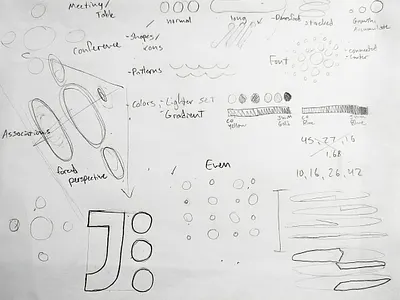 Meeting/
Table
normal
long
stacked
Growth
Accumulate
Conference
-Shapes/
Icons
Font
-Patterns
-Colors:
-Lighter SET
-Gradient
Yellow
Blue
Associations
forced
perspective
Even
45, 27, 16
1.68
10, 16, 26, 42
J